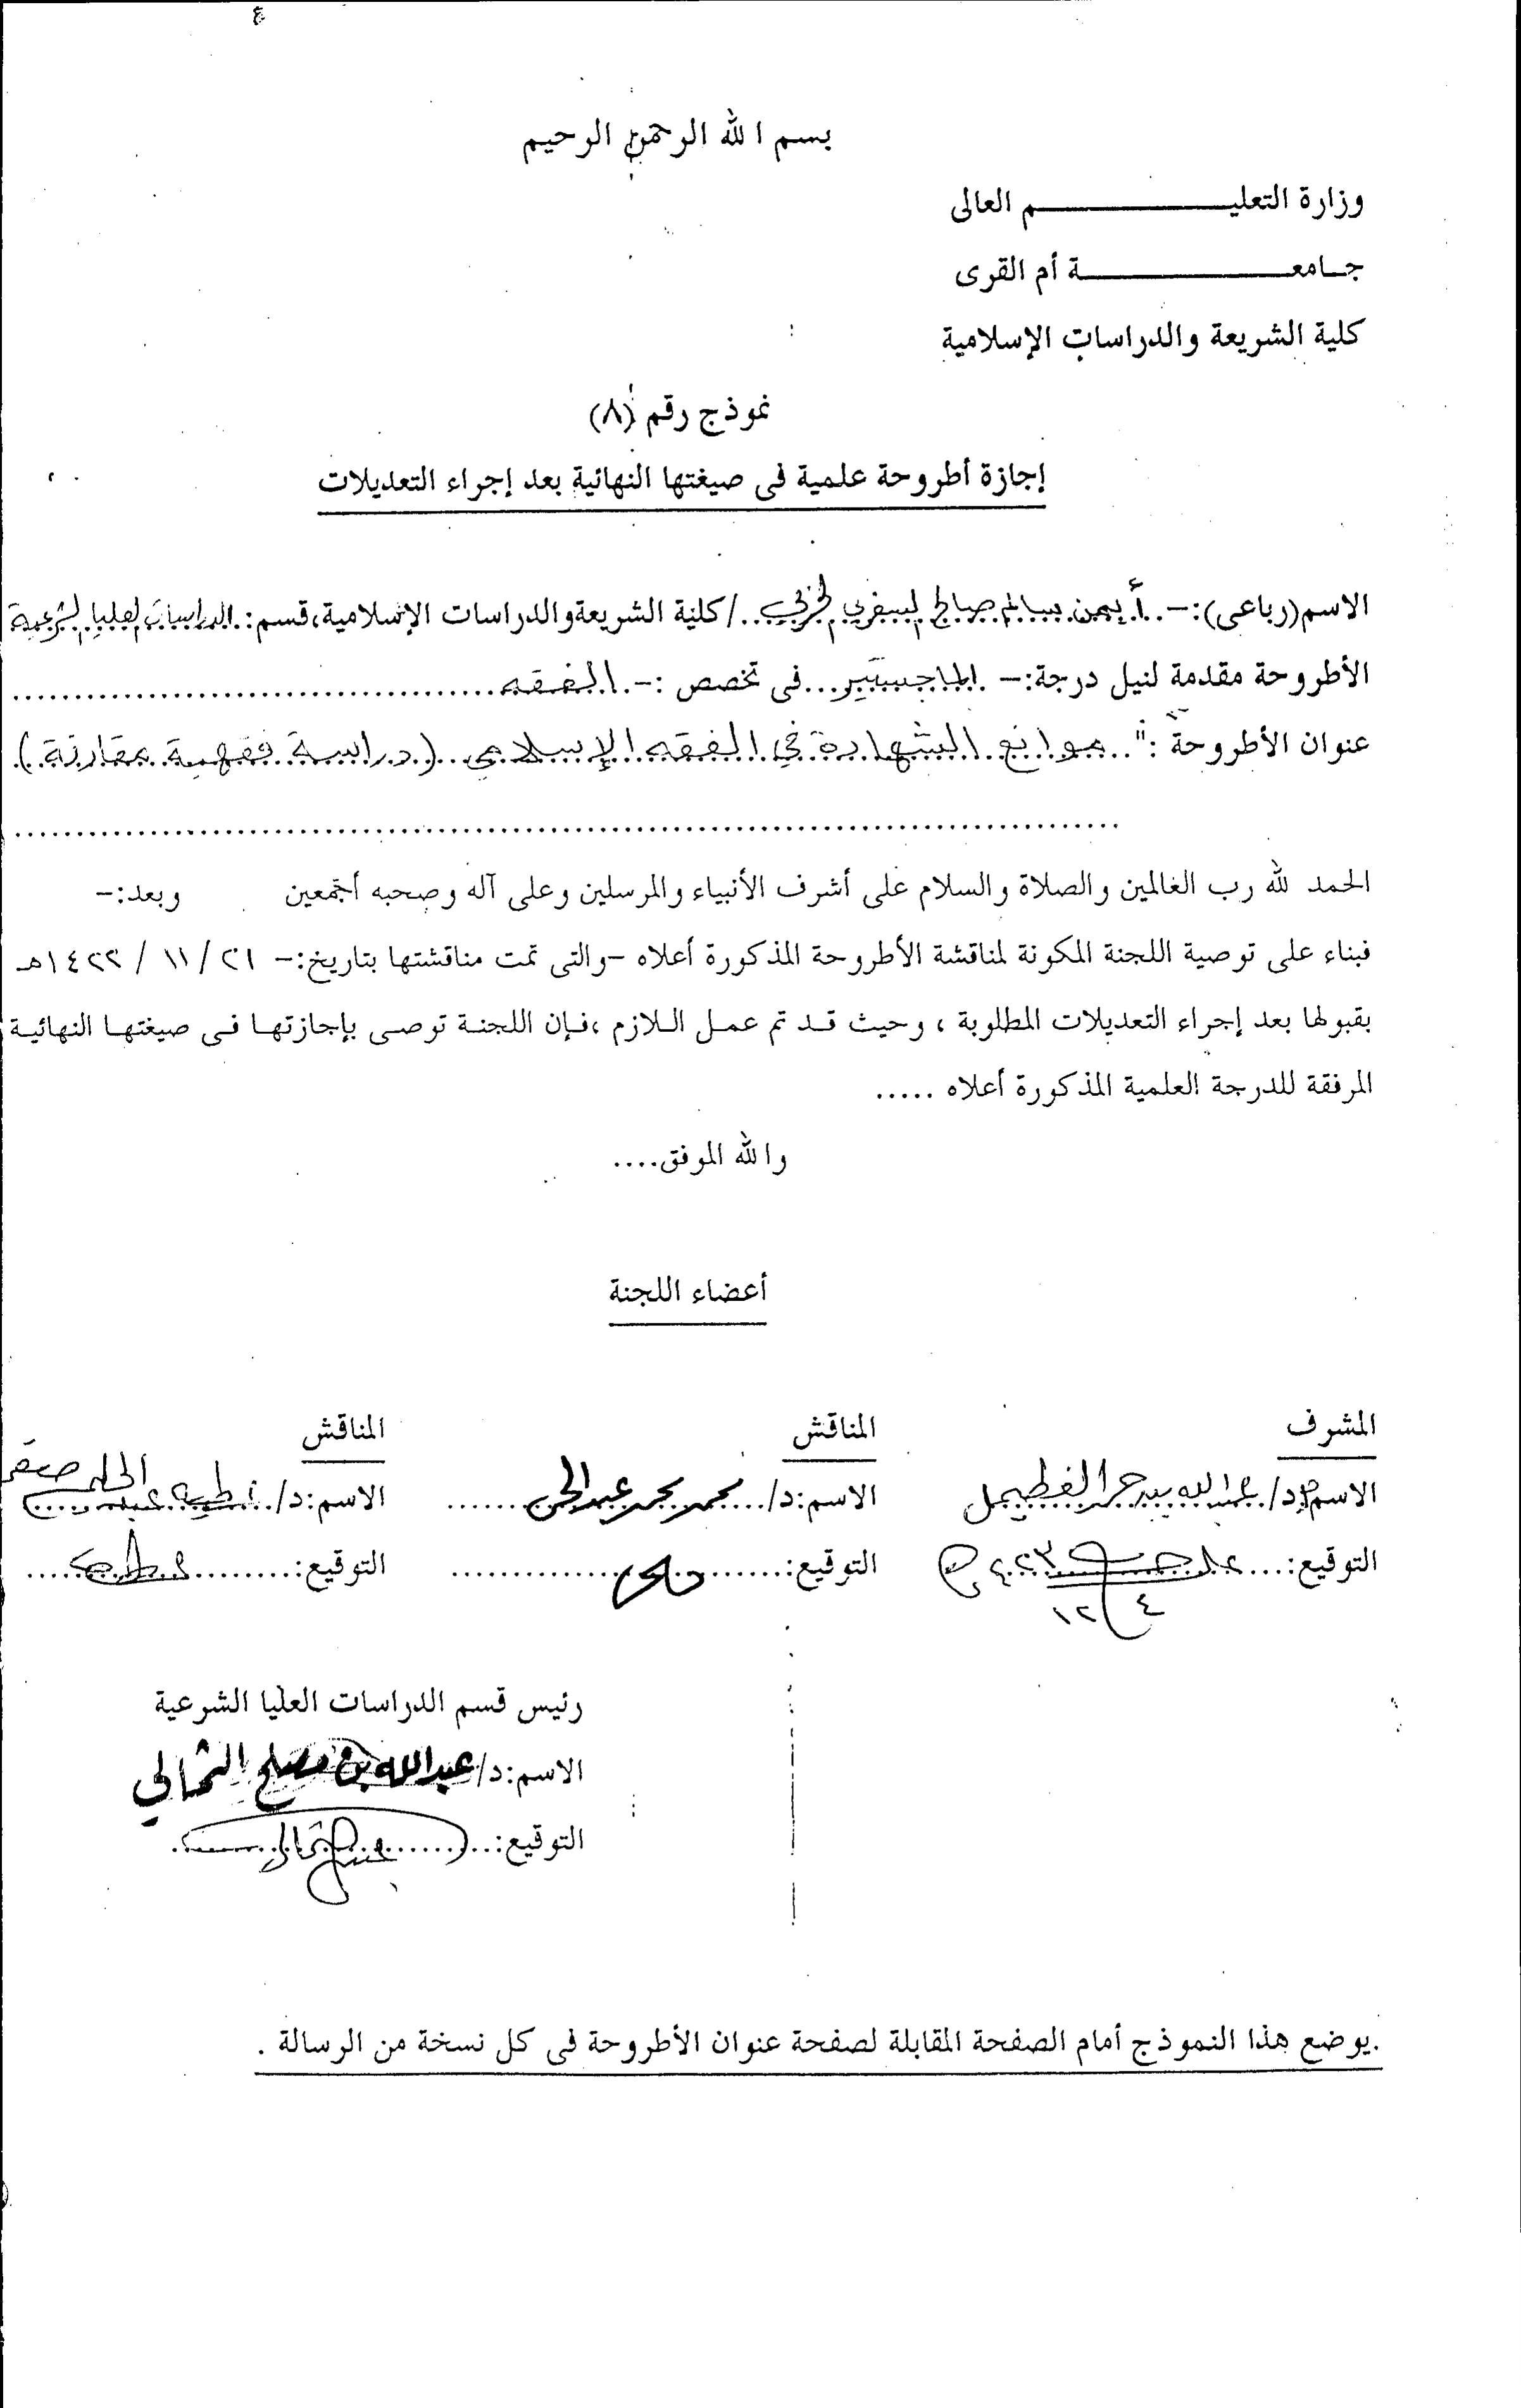 بسم الله الرحمن الرحيم
وزارة التعليم العالى
جامعة أم القرى
كلية الشريعة والدراسات الإسلامية
نموذج رقم (٨)
إجازة أطروحة علمية فى صيغتها النهائية بعد إجراء التعديلات
الاسم(رباعى):- أيمن سالم صالح السفري الحربي / كلية الشريعة والدراسات الإسلامية، قسم: الدراسات العليا الشرعية
الأطروحة مقدمة لنيل درجة:- الماجستير فى تخصص :- الفقه
عنوان الأطروحة :" موانع الشهادة في الفقه الإسلامي (دراسة فقهية مقارنة)
الحمد لله رب العالمين والصلاة والسلام على أشرف الأنبياء والمرسلين وعلى آله وصحبه أجمعين وبعد:-
فبناء على توصية اللجنة المكونة لمناقشة الأطروحة المذكورة أعلاه -والتى تمت مناقشتها بتاريخ:- ٢١ / ١١ / ١٤٢٢هـ
بقبولها بعد إجراء التعديلات المطلوبة ، وحيث قد تم عمل اللازم ،فإن اللجنة توصى بإجازتها فى صيغتها النهائية
المرفقة للدرجة العلمية المذكورة أعلاه .....
والله الموفق....
أعضاء اللجنة
المشرف المناقش المناقش
الاسم: د/ عبدالله بن حمد الغطيمل الاسم:د/ محمد محمد عبدالحي الاسم:د/ عطيه عبدالحليم صقر
التوقيع: التوقيع: التوقيع:
٤ / ١٢
رئيس قسم الدراسات العليا الشرعية
الاسم:د/ عبدالله بن مصلح الثمالي
التوقيع:
.يوضع هذا النموذج أمام الصفحة المقابلة لصفحة عنوان الأطروحة فى كل نسخة من الرسالة .